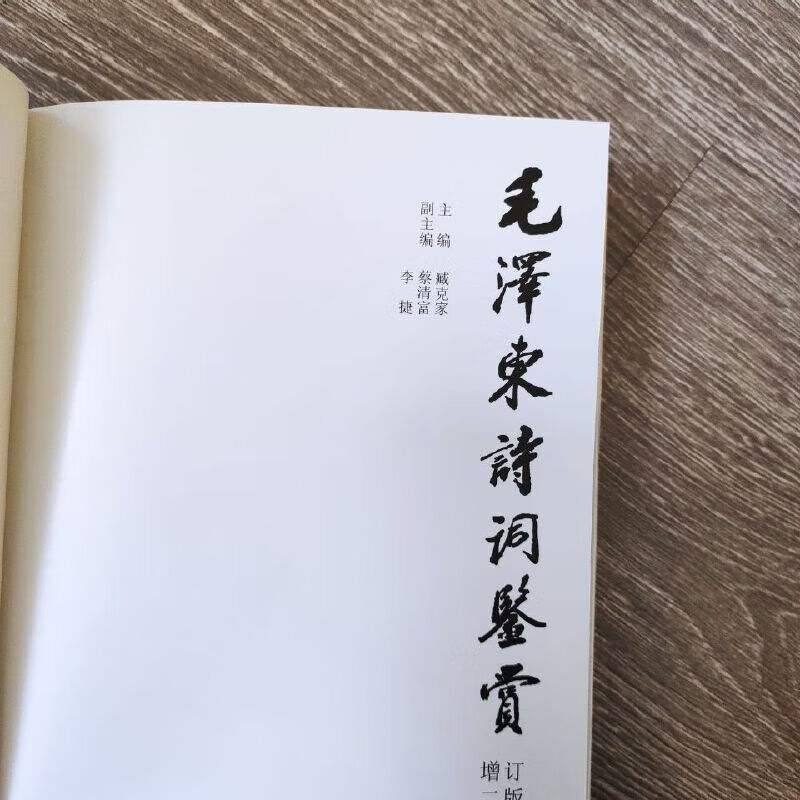 毛澤東詩詞鑒賞
增订
版
主编 臧克家
副主编 蔡清富
李捷